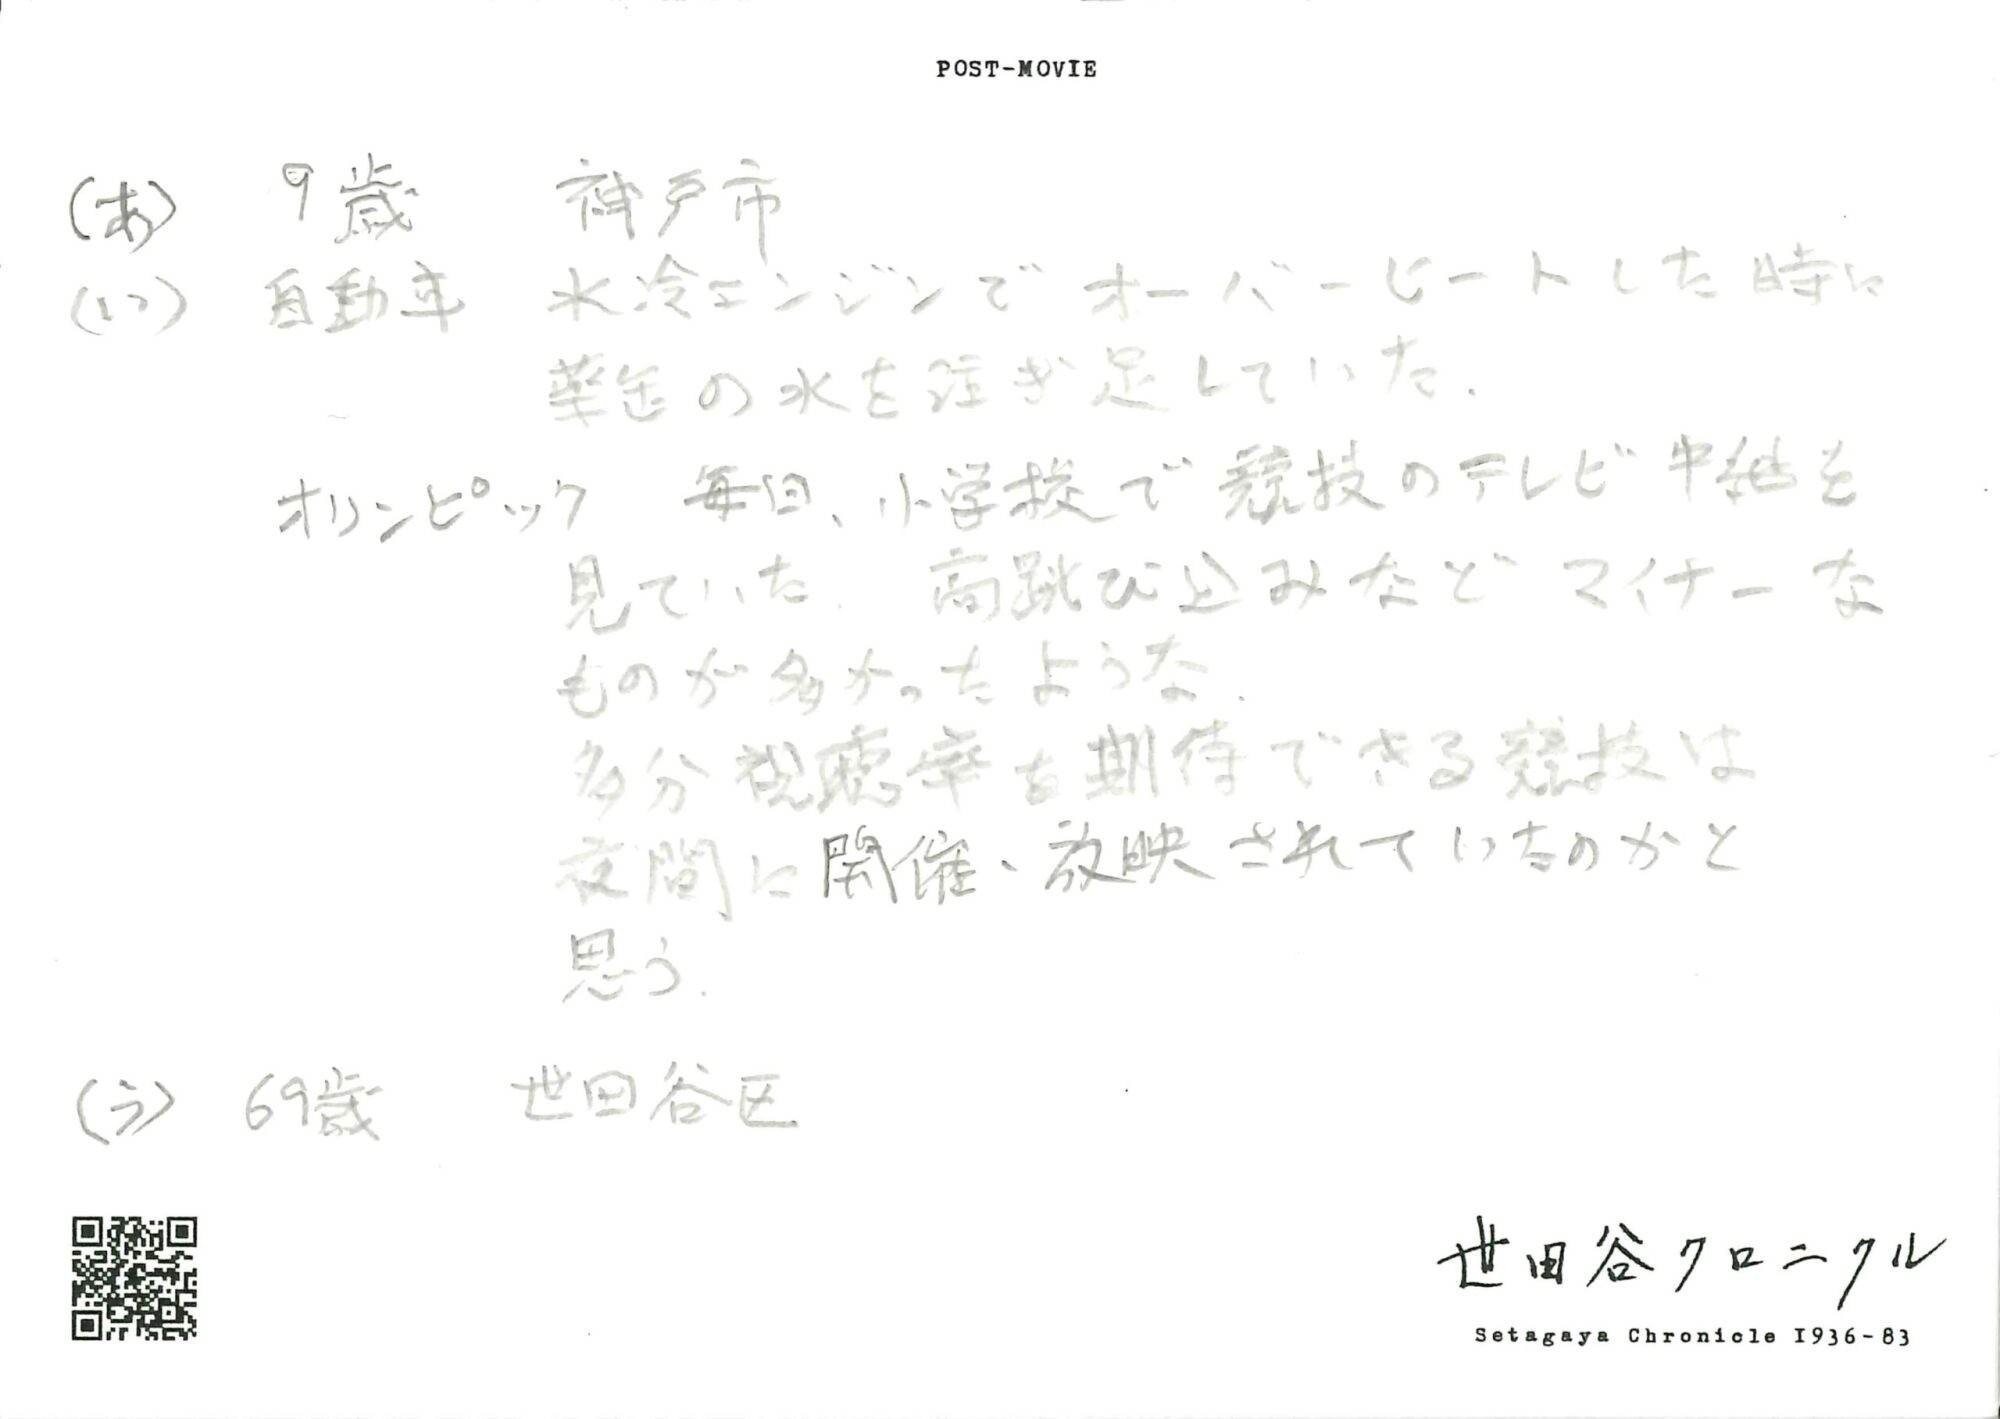 POST-MOVIE
(あ) 9歳 神戸市
(い) 自動車 水冷エンジンでオーバーヒートした時に
薬缶の水を注ぎ足していた.
オリンピック 毎日、小学校で競技のテレビ中継を
見ていた. 高跳び込みなどマイナーな
ものが多かったような.
多分視聴率を期待できる競技は
夜間に開催、放映されていたのかと
思う.
(う) 69歳 世田谷区
世田谷クロニクル
Setagaya Chronicle 1936-83